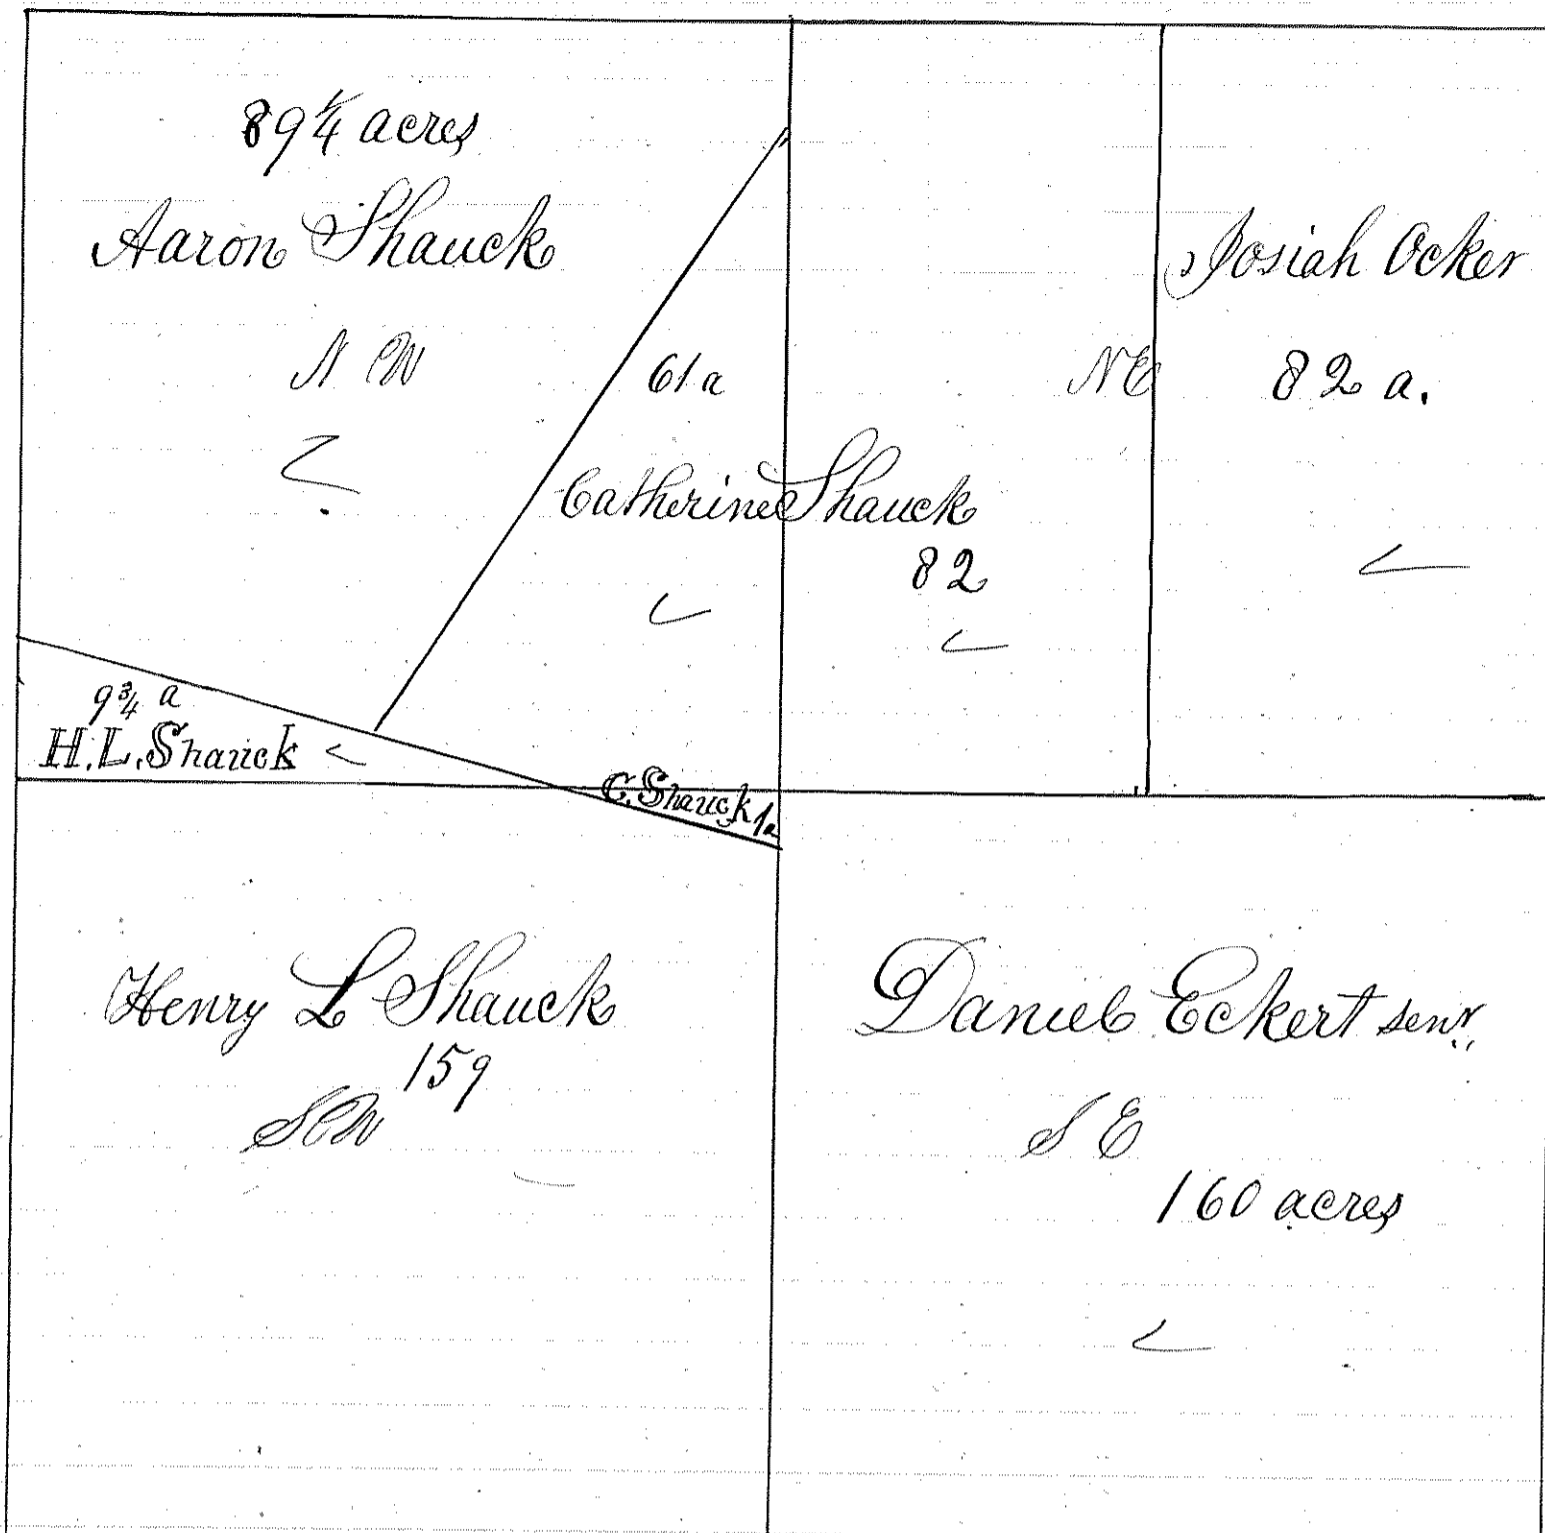 89 1/4 acres
Aaron Shauck
N W
61 a
Catherine Shauck
82
N E
Josiah Ocker
82 a.
9 3/4 a
H.L. Shauck
C. Shauck 1a
Henry L Shauck
159
S W
Daniel Eckert senr.
S E
160 acres